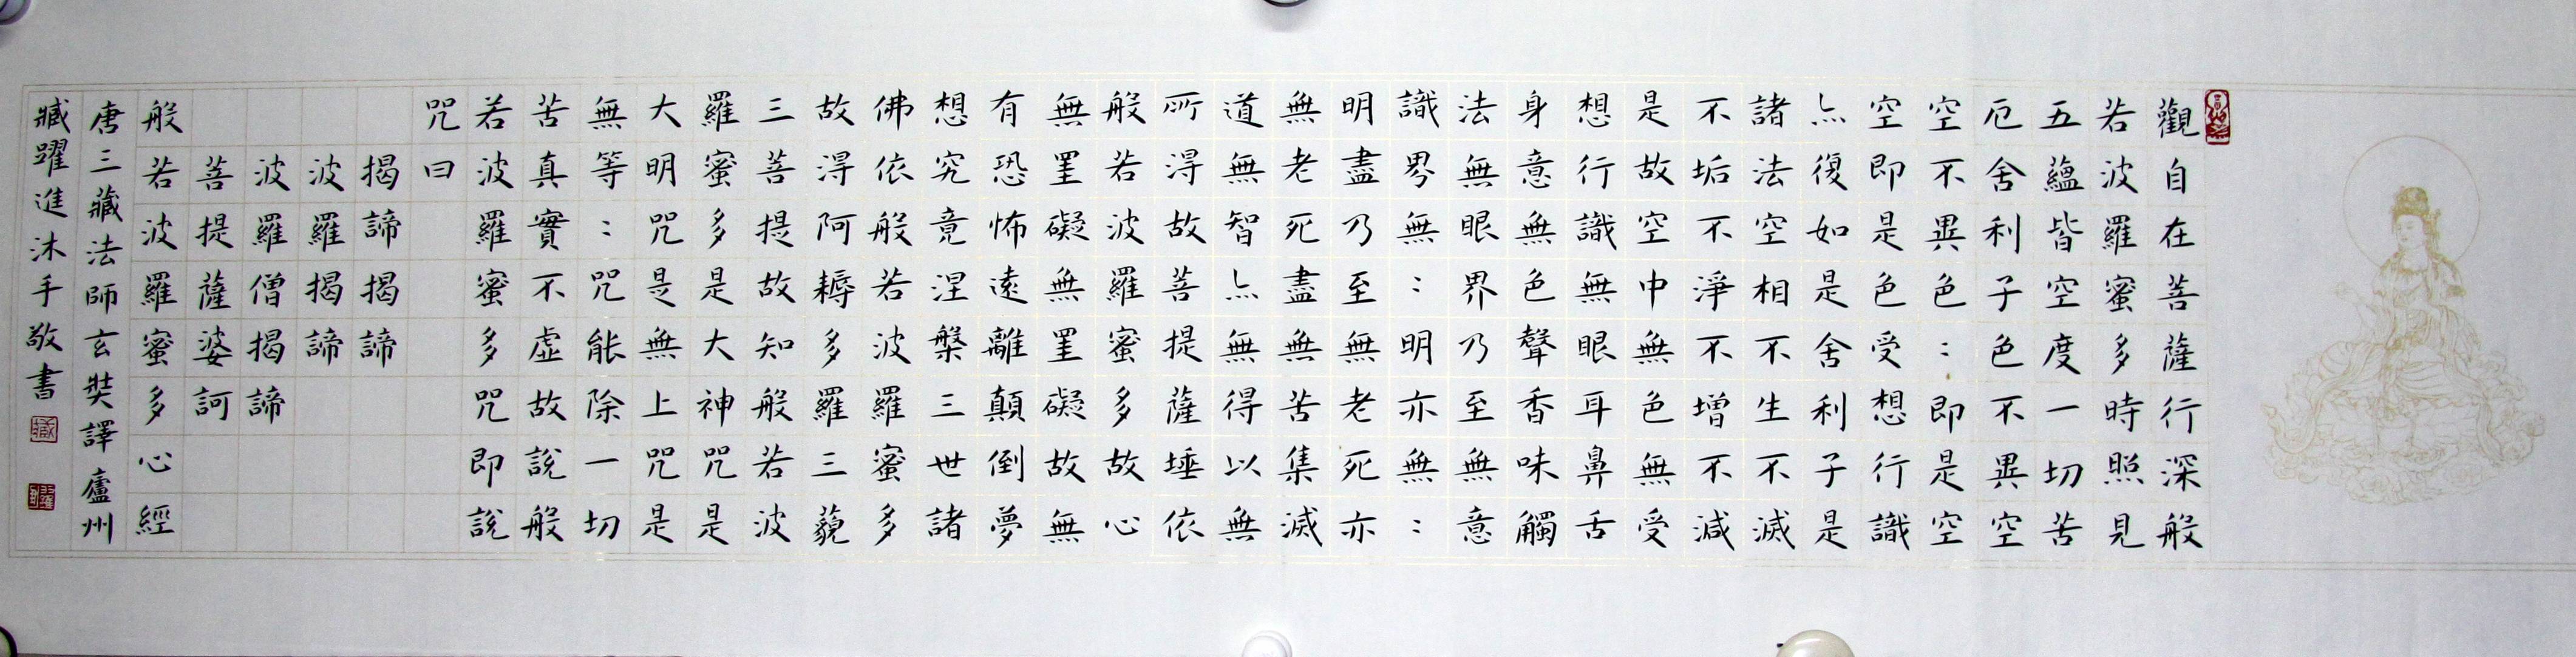 觀自在菩薩行深般
若波羅蜜多時照見
五蘊皆空度一切苦
厄舍利子色不異空
空不異色：即是空
空即是色受想行識
亦復如是舍利子是
諸法空相不生不滅
不垢不淨不增不減
是故空中無色無受
想行識無眼耳鼻舌
身意無色聲香味觸
法無眼界乃至無意
識界無：明亦無：
明盡乃至無老死亦
無老死盡無苦集滅
道無智亦無得以無
所得故菩提薩埵依
般若波羅蜜多故心
無罣礙無罣礙故無
有恐怖遠離顛倒夢
想究竟涅槃三世諸
佛依般若波羅蜜多
故得阿耨多羅三藐
三菩提故知般若波
羅蜜多是大神咒是
大明咒是無上咒是
無等：咒能除一切
苦真實不虛故說般
若波羅蜜多咒即說
咒曰
揭諦揭諦
波羅揭諦
波羅僧揭諦
菩提薩婆訶
般若波羅蜜多心經
唐三藏法師玄奘譯廬州
臧躍進沐手敬書